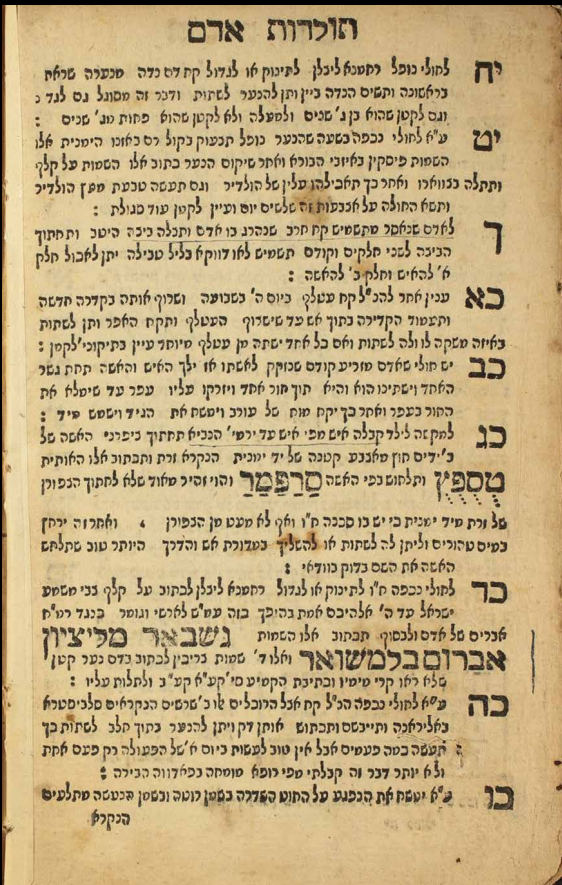 תולדות אדם
יח לחולי נופל רחמנא ליצלן לתינוק או לגדול קח דם נדה מנערה שראת
בראשונה ותשים הנדה ביין ותן להנער לשתות ודבר זה מסוגל גם לגד
וגם לקטן שהוא בן ג' שנים ולמעלה ולא לקטן שהוא פחות מג' שנים :
יט ע"א לחולי נכפה בשעה שהנער נופל תצעוק בקול רם באזנו הימנית אלו
השמות פיסקין באיזני הבורא ואחר שיקום הנער כתוב אלו השמות על קלף
ותתלה בצווארו ואחר כך תאכילהו עלין של הולדיר וגם תעשה טבעת מעץ הולדיר
ותשא החולה על אצבעות זה שלשים יום ועיין לקמן עוד סגולת :
ך לאדם שנאסר מתשמיש קח חרב שנהרג בו אדם ותצלה ביצה היטב ותחתוך
הביצה לשני חלקים וקודם תשמיש לאו דווקא בליל טבילה יתן לאכול חלק
א' להאיש וחלק ב' להאשה :
כא ענין אחר להנ"ל קח עטלף ביום ה' בשבועה ושרוף אותה בקדרה חדשה
ותעמוד הקדירה בתוך אש עד שישרוף העטלף ותקח האפר ותן לשתות
באיזה משקה לו ולה לשתות ואם כל אחד ישתה מן עטלף מיוחד עיין בתיקוני' לקמן :
כב יש חולי שאדם מזריע קודם שנזקק לאשתו אז ילך האיש והאשה תחת גשר
האחד וישתינו הוא והיא תוך חור אחד ויזרקו עליו עפר עד שימלא את
החור בעפר ואחר כך יקח מוח של עורב וימשח את הגיד וישמש מיד :
כג למקשה לילד קבלה איש מפי איש עד ירמי' הנביא תחתוך ציפרני האשה של
ב' ידים חוץ מאצבע קטנה של יד ימנית הנקרא זרת ותכתוב אלו האותית
טספץ ותלחוש בפי האשה סרפמר והוי זהיר מאוד שלא לחתוך הצפורן
של זרת מיד ימנית כי יש בו סכנה ח"ו ואף לא מעט מן הצפורן , ואחר זה ירחץ
במים טהורים וליתן לה לשתות או להשליך במדורת אש והדרך היותר טוב שתלחש
האשה את השם בדוק בוודאי :
כד לחולי נכפה ח"ו לתינוק או לגדול רחמנא ליצלן לכתוב על קלף צבי משמע
ישראל עד ה' אלהיכם אמת בהיפך בזה עמ"ש לארשי וגומר כנגד רמ"ח
אברים של אדם ולבסוף תכתוב אלו השמות גשבאר מליציון
אברוםבלמשואר ואלו ד' שמות צריכין לכתוב בדם נער קטן
שלא ראו קרי מימיו ובתיבת הקמיע סי' קע"א קע"ב ולתלות עליו :
כה ע"א לחולי נכפה הנ"ל קח אצל הרוכלים
באליראנה ותייבשם ותכתוש אותן דק ויתן להנער בתוך חלב לשתות כך
תעשה כמה פעמים אבל אין טוב לעשות ביום א' של הפעולה רק פעם אחת
ולא יותר דבר זה קבלתי מפי רופא מומחה בפאדווה הבירה :
כו ע"א ימשח את הנפגע על החוט השדרה בשמן רוטה ובשמן הנעשה מתלעים
הנקרא